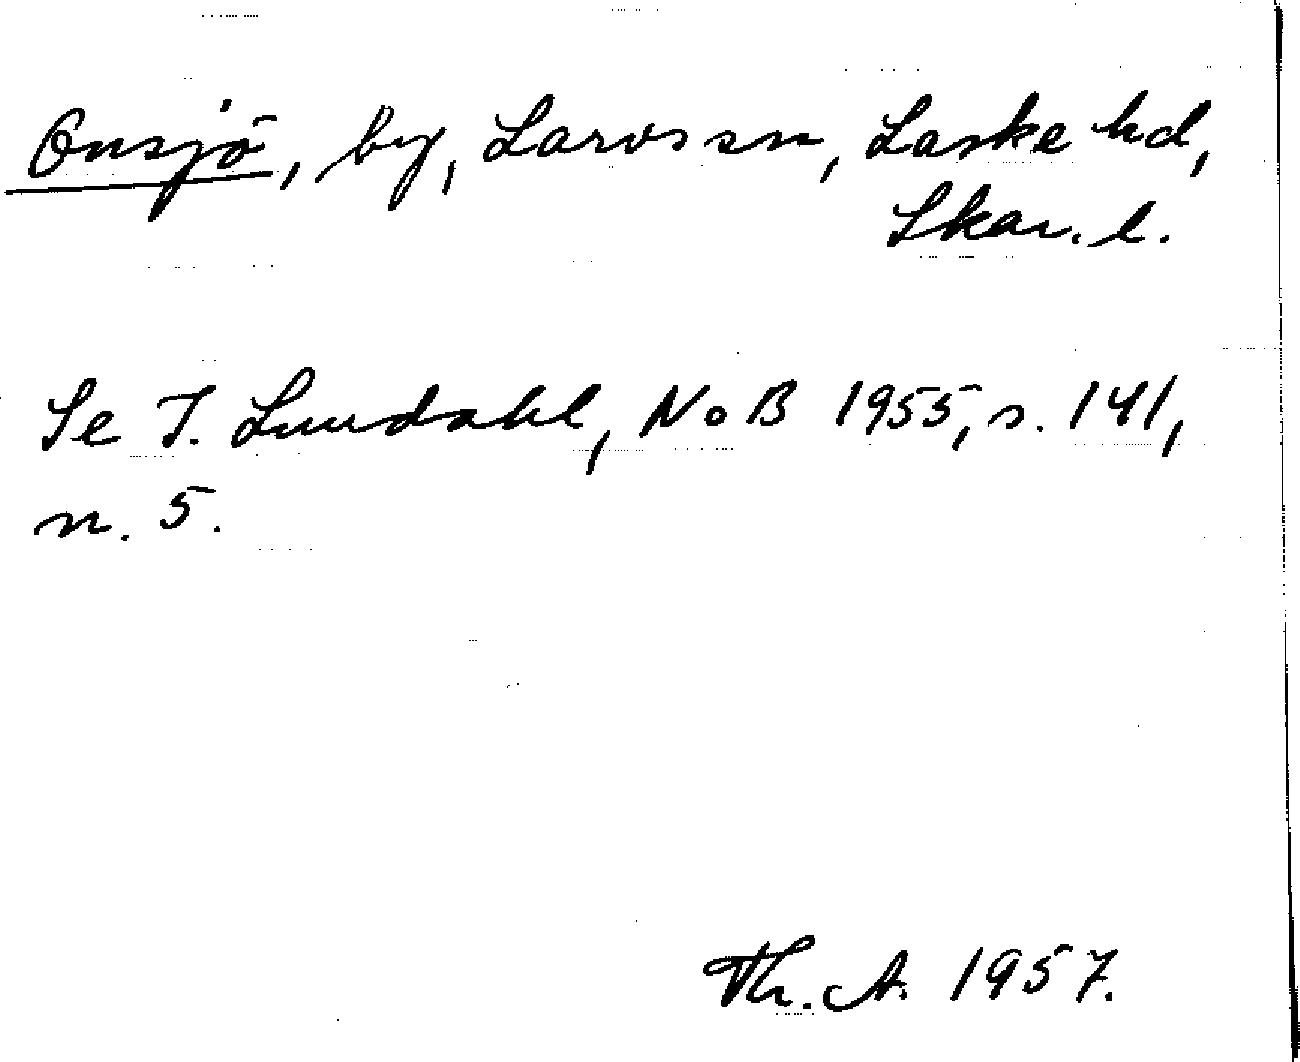 Onsjö, by, Larvs sn, Laske hd,
Skar. l.
Se I. Lundahl, NoB 1955, s. 141,
n. 5.
Th. A. 1957.